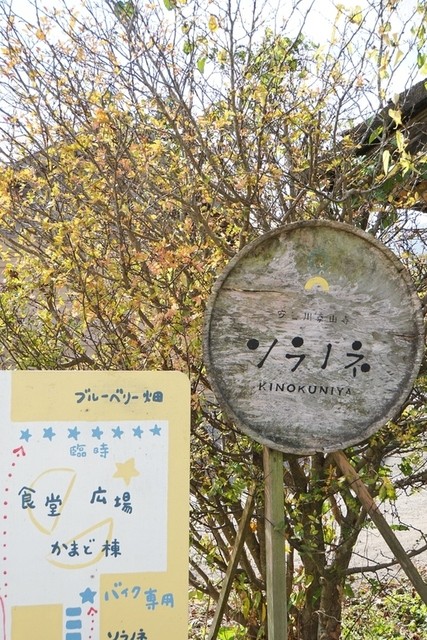 ソラノネ
KINOKUNIYA
ブルーベリー畑
臨時
食堂 広場
かまど棟
バイク専用
ソラノネ